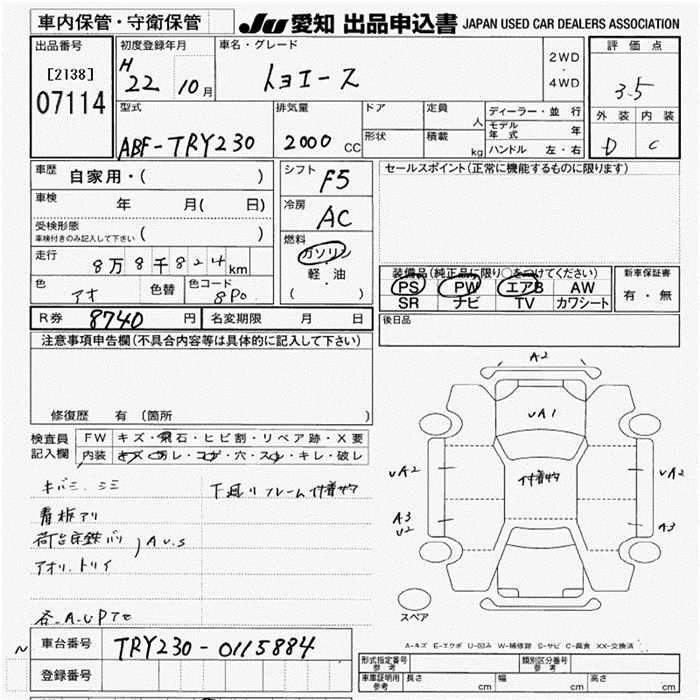 車内保管・守衛保管 JU 愛知 出品申込書 JAPAN USED CAR DEALERS ASSOCIATION
出品番号 初度登録年月 車名・グレード 2WD・4WD 評価点
[2138] 07114 H22 10月 トヨエース 3.5
型式 排気量 ドア 定員 人 ディーラー・並行 外装 内装
ABF-TRY230 2000 CC 形状 積載 kg モデル年式 年 D C
ハンドル 左・右
車歴 自家用・( ) シフト F5 セールスポイント(正常に機能するものに限ります)
車検 年 月( 日) 冷房 AC
受検形態 車検付きのみ記入して下さい ( )
走行 8万8千824km 燃料 ガソリン・軽・油 ( )
装備品(純正品に限り○をつけてください) 新車保証書
色 アオ 色替 色コード 8P0 PS PW エアB AW 有・無
SR ナビ TV カワシート
R券 8740円 名変期限 月 日 後日品
注意事項申告欄(不具合内容等は具体的に記入して下さい)
修復歴 有(箇所 )
検査員記入欄 FW キズ・飛石・ヒビ割・リペア跡・X要
内装 キズ・汚レ・コゲ・穴・スレ・キレ・破レ
A2
UA1
UA2 付着サビ UA2
A3 U2 A3
キバミ シミ 下廻りフレーム付着サビ
看板アリ
荷台床鉄バリ
アオリ、トリイ
AUS
各AUPTセ
スペア
A-キズ E-エクボ U-凹み W-補修跡 S-サビ C-腐食 XX-交換済
車台番号 TRY230-0115884
登録番号
形式指定番号 参考 類別区分番号 参考
車庫証明用 参考 長さ cm 幅 cm 高さ cm